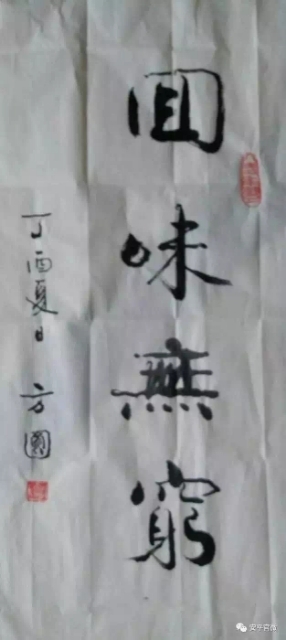 回味無窮
丁酉夏日 方圓